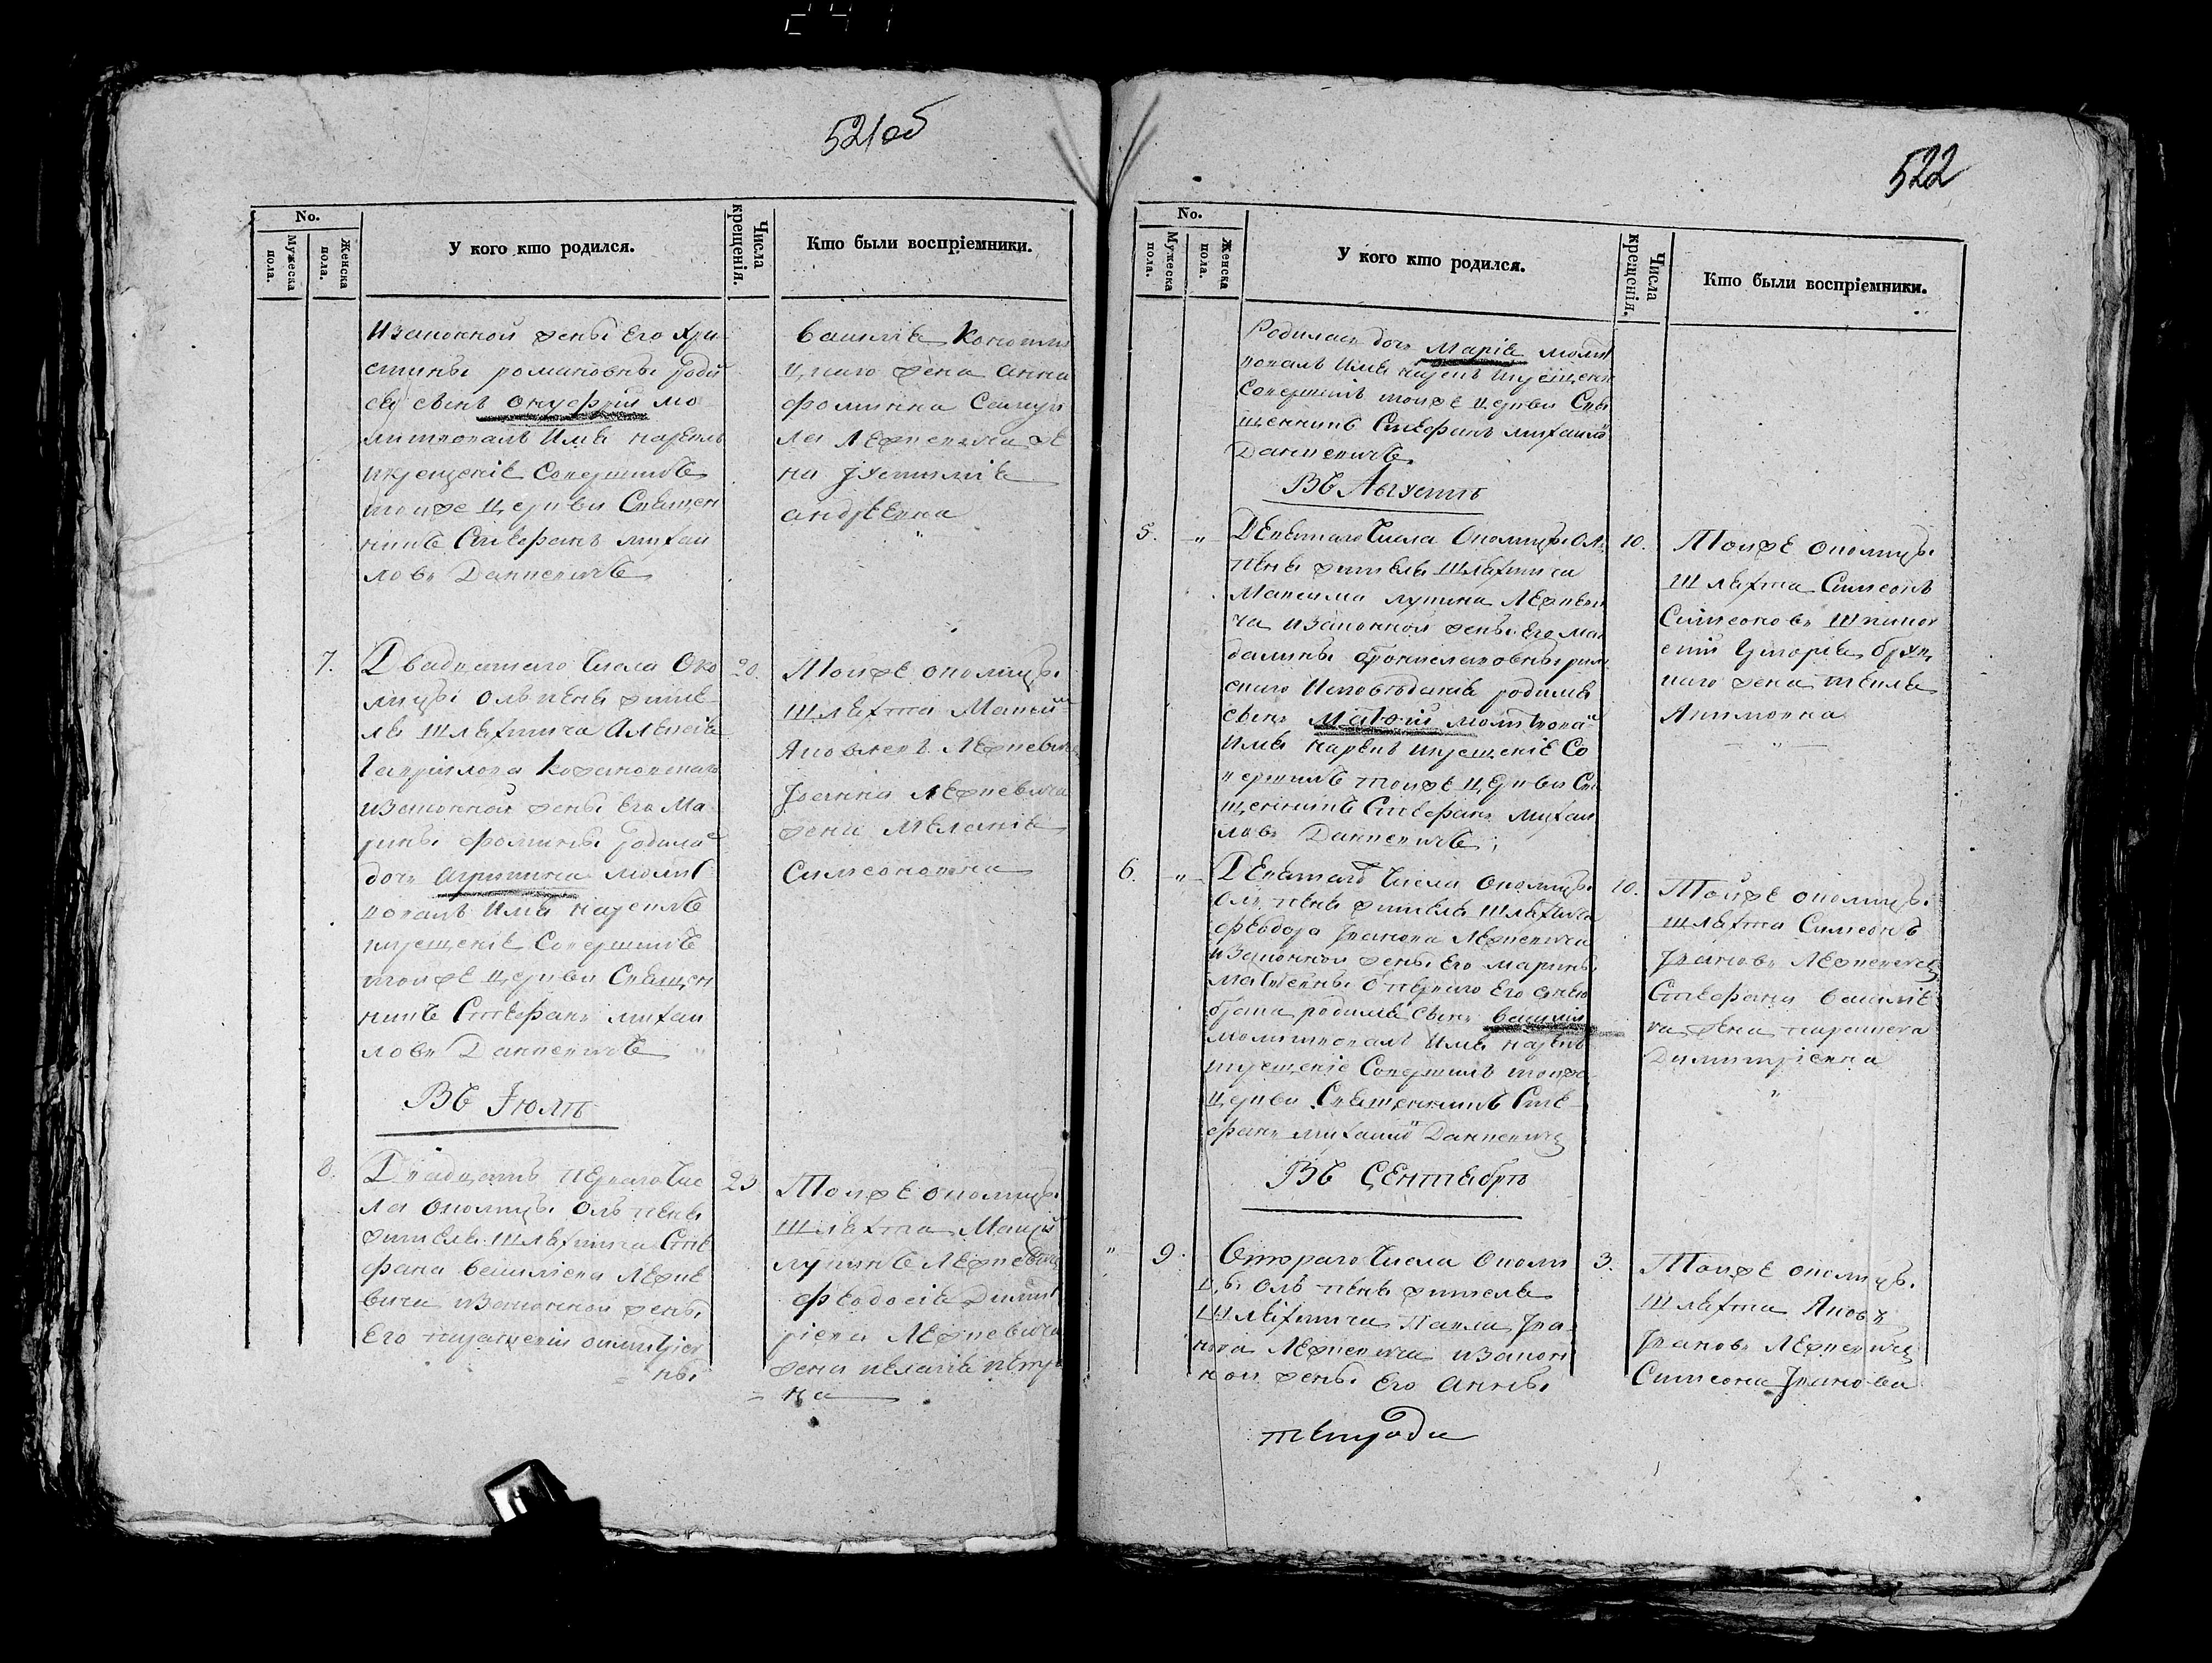 241
521об
No.
Мужеска пола.
Женска пола.
У кого кто родился.
Числа крещенія.
Кто были воспріемники.
Изаконной жены Его Хри
стины романовны роди
ся сынъ Онуфрий мо
литвовалъ Имя нарекъ
икрещеніе Совершилъ
тоиже Церкви Священ
никъ Стефанъ михаи
ловъ Данкевичъ
василія
жена Анна
фоминна Самуи
ла Лежневича же
на Іустинія
андреевна
7. Двадцатаго Числа Око
лицы Ольпень жите
ля Шляхтича Алексія
Гавріилова
изаконной жены Его Ма
рины фомины родила
дочь Агрипина молит
вовалъ Имя нареклъ
икрещеніе Совершилъ
тоиже Церкви Священ
никъ Стефанъ михаи
ловъ Данкевичъ
20.
Тоиже околицы
Шляхта
Яковлевъ Лежневичъ
Іоанна Лежневича
жена Меланія
Симеоновна
ВЪ Іюлѣ
8. Двадцать перваго Чис
ла Околицы Ольпень
жителя Шляхтича Сте
фана васильева Лежне
вича изаконной жены
Его параскевіи димитріев
= ны
23
Тоиже околицы
Шляхта
лукинъ Лежневичъ
феодосія Димит
ріева Лежневича
жена пелагія петро
= на
522
No.
Мужеска пола.
Женска пола.
У кого кто родился.
Числа крещенія.
Кто были воспріемники.
Родилась дочь Марія молит
вовалъ Имя нарекъ икрещеніе
Совершилъ тоиже Церкви Свя
щенникъ Стефанъ михаило
Данкевичъ
ВЪ Августѣ
5. „ Девятаго Числа Околицы Ол
пень жителя Шляхтича
Максима лукина Лежневи
ча изаконной жены Его Маг
далины брониславовны рим
скаго Исповѣданія родился
сынъ Матѳій молитвова
Имя нарекъ икрещеніе Со
вершилъ тоиже Церкви Свя
щенникъ Стефанъ Михаи
ловъ Данкевичъ;
10.
Тоиже околицы
Шляхта Симеонъ
Симеоновъ
жена текля
Якимовна
6. „ Девятаго Числа Околицы
Оль пень жителя Шляхтича
феодора Іванова Лежневича
изаконной жены Его марины
Матвеевны
брака родился сынъ василій
молитвовалъ Имя нарекъ
икрещеніе Совершилъ тоиже
Церкви Священникъ Сте
фанъ михаило Данкевичъ
10.
Тоиже околицы
Шляхта Симеонъ
Івановъ Лежневичъ
Стефана василіе
ва жена параскева
Димитріевна
ВЪ Сентябрѣ
„ 9. Втораго Числа Околи
цы Оль пень жителя
Шляхтича Павла Іва
нова Лежневича изакон
ной жены Его Анны
3.
Тоиже околицы
Шляхта Яковъ
Івановъ Лежневичъ
Симеона Іванова